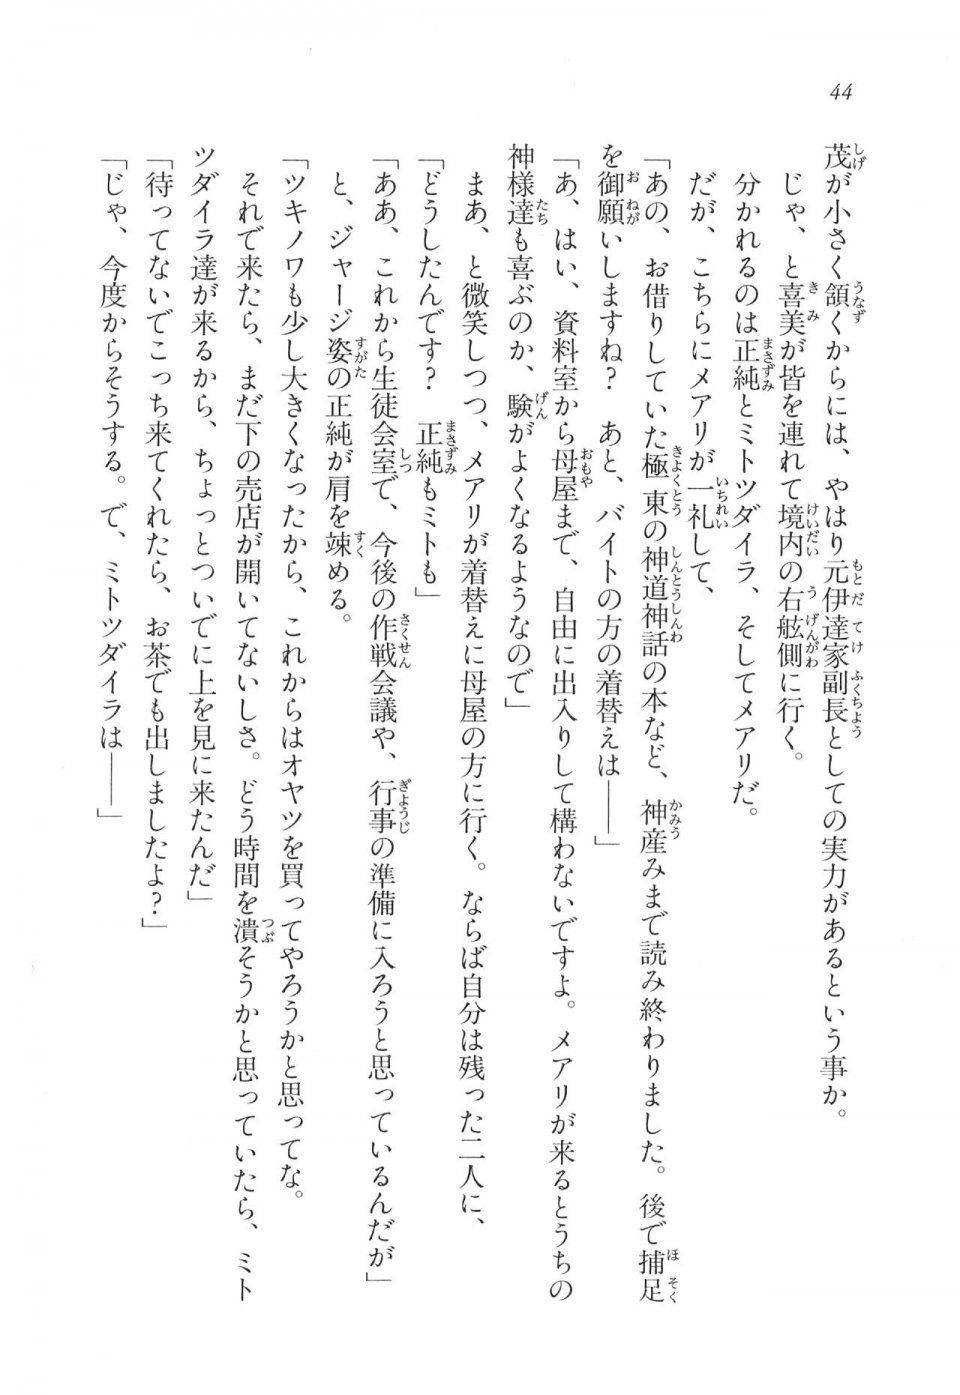 44
茂が小さく頷くからには、やはり元伊達家副長としての実力があるという事か。
じゃ、と喜美が皆を連れて境内の右舷側に行く。
分かれるのは正純とミトツダイラ、そしてメアリだ。
だが、こちらにメアリが一礼して、
「あの、お借りしていた極東の神道神話の本など、神産みまで読み終わりました。後で捕足
を御願いしますね？　あと、バイトの方の着替えは――」
「あ、はい、資料室から母屋まで、自由に出入りして構わないですよ。メアリが来るとうちの
神様達も喜ぶのか、験がよくなるようなので」
まあ、と微笑しつつ、メアリが着替えに母屋の方に行く。ならば自分は残った二人に、
「どうしたんです？　正純もミトも」
「ああ、これから生徒会室で、今後の作戦会議や、行事の準備に入ろうと思っているんだが」
と、ジャージ姿の正純が肩を竦める。
「ツキノワも少し大きくなったから、これからはオヤツを買ってやろうかと思ってな。
それで来たら、まだ下の売店が開いてないしさ。どう時間を潰そうかと思っていたら、ミト
ツダイラ達が来るから、ちょっとついでに上を見に来たんだ」
「待ってないでこっち来てくれたら、お茶でも出しましたよ？」
「じゃ、今度からそうする。で、ミトツダイラは――」